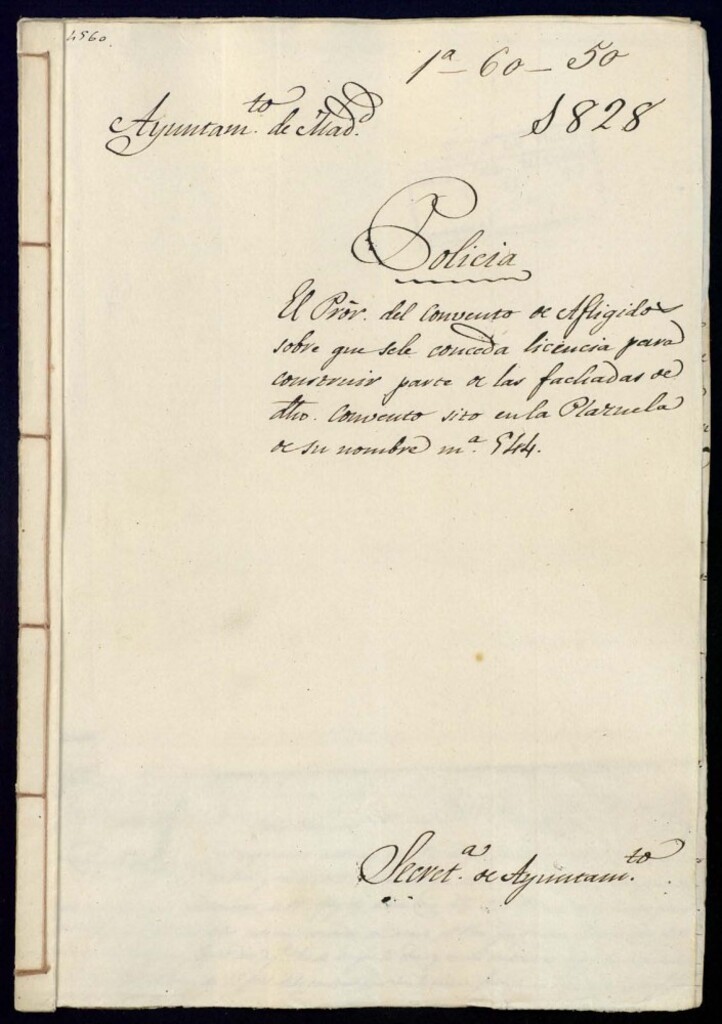 4560
1ª - 60 - 50
Ayuntam.to de Mad.d
1828
Policia
El Prõr. del Convento de Afligidos
sobre que sele conceda licencia para
construir parte de las fachadas de
dho. Convento sito en la Plazuela
de su nombre mª. 544.
Secret.a de Ayuntam.to